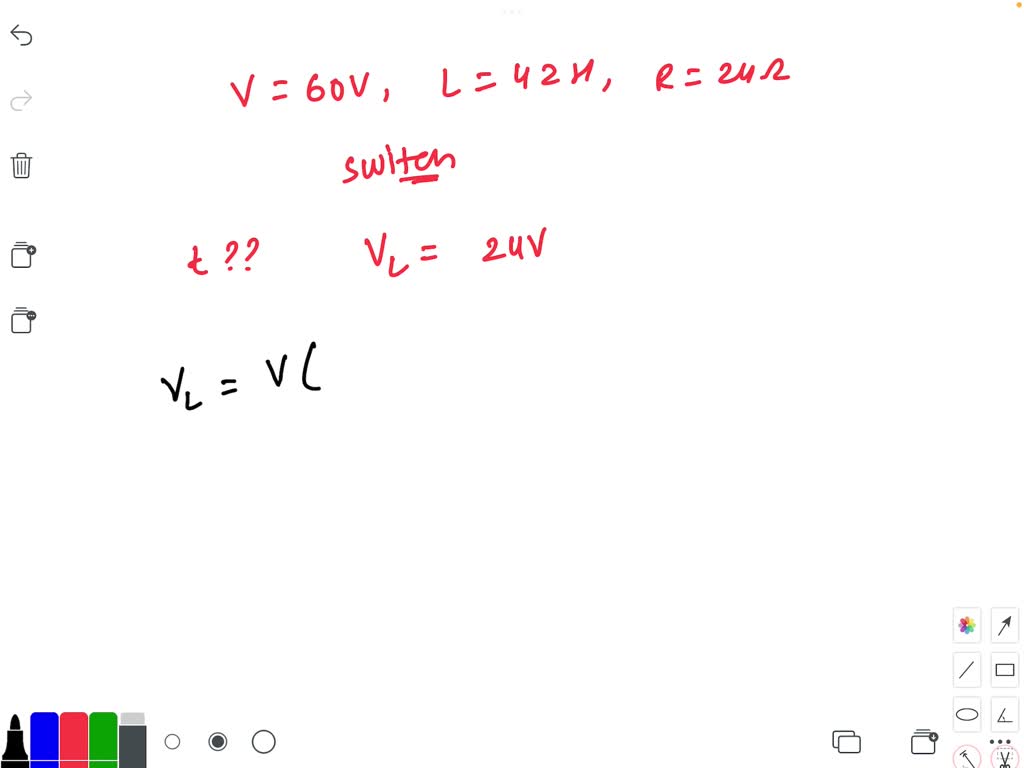 V = 60V, L = 42H, R = 24Ω
switch
t ?? V_L = 24V
V_L = V (